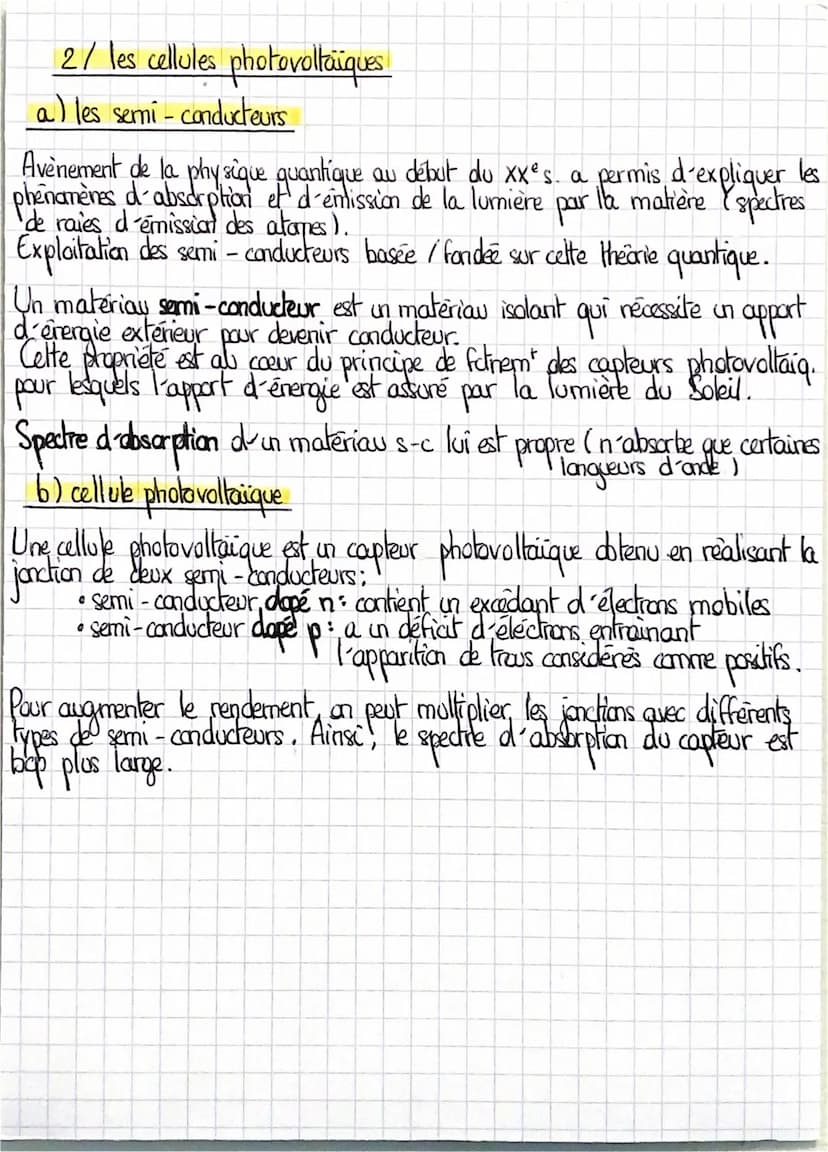 2/ les cellules photovoltaïques
a) les semi-conducteurs
Avènement de la physique quantique au début du XXe s. a permis d'expliquer les
phénomènes d'absorption et d'émission de la lumière par la matière (spectres
de raies d'émission des atomes).
Exploitation des semi-conducteurs basée / fondée sur cette théorie quantique.
Un matériau semi-conducteur est un matériau isolant qui nécessite un apport
d'énergie extérieur pour devenir conducteur.
Cette propriété est au cœur du principe de fctnemt des capteurs photovoltaïq.
pour lesquels l'apport d'énergie est assuré par la lumière du Soleil.
Spectre d'absorption d'un matériau s-c lui est propre (n'absorbe que certaines
longueurs d'onde)
b) cellule photovoltaïque
Une cellule photovoltaïque est un capteur photovoltaïque obtenu en réalisant la
jonction de deux semi-conducteurs :
• semi-conducteur dopé n : contient un excédant d'électrons mobiles
• semi-conducteur dopé p : a un déficit d'électrons entrainant
l'apparition de trous considérés comme positifs.
Pour augmenter le rendement, on peut multiplier les jonctions avec différents
types de semi-conducteurs. Ainsi, le spectre d'absorption du capteur est
bcp plus large.